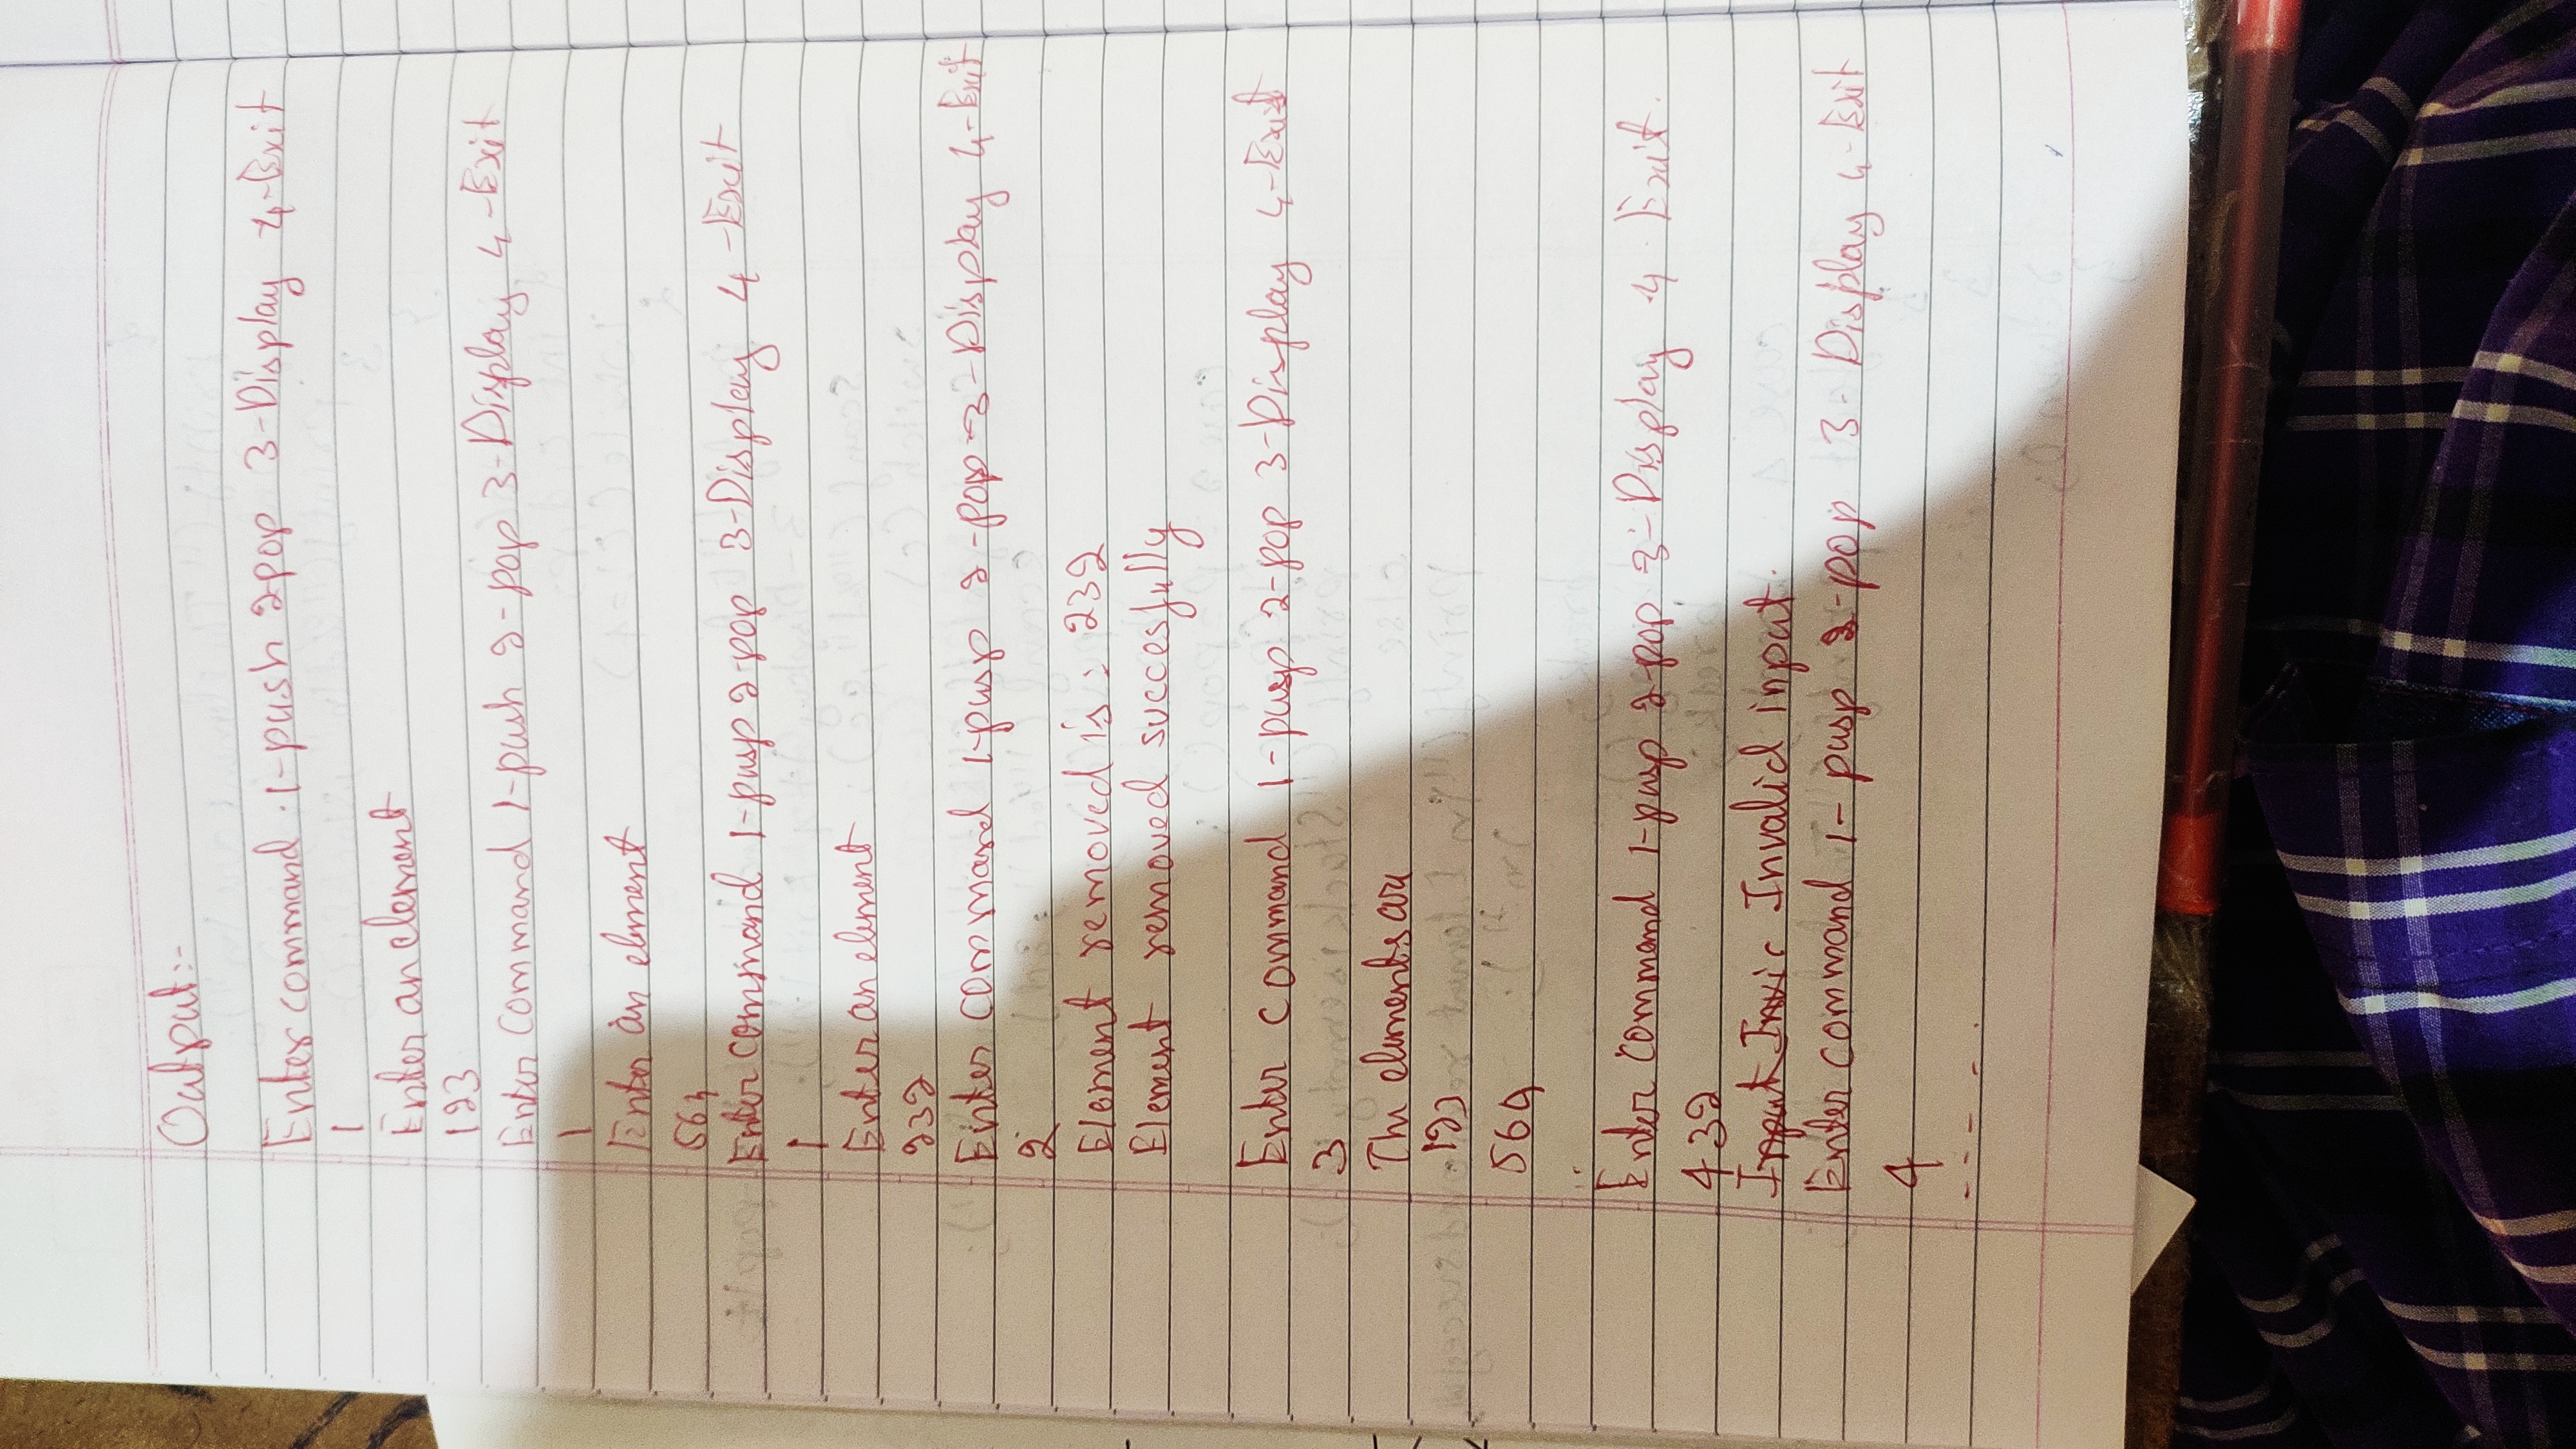 Output:-
Enter command 1-push 2pop 3-Display 4-Exit
1
Enter an element
123
Enter Command 1-push 2-pop 3-Display 4-Exit
1
Enter an elment
564
Enter command 1-pusp 2-pop 3-Display 4-Exit
1
Enter an elment
232
Enter command 1-pusp 2-pop 3-Display 4-Exit
2
Element removed is: 232
Element removed succesfully
Enter command 1-pusp 2-pop 3-Display 4-Exit
3
The elements are
123
564
Enter command 1-pusp 2-pop 3-Display 4 Exit.
432
Input Invic Invalid input.
Enter command 1-pusp 2-pop 3-Display 4-Exit
4
- - - - .